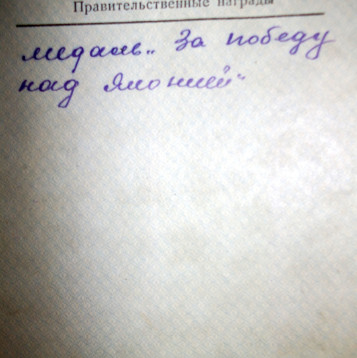 Правительственные награды
медаль „За победу
над Японией"